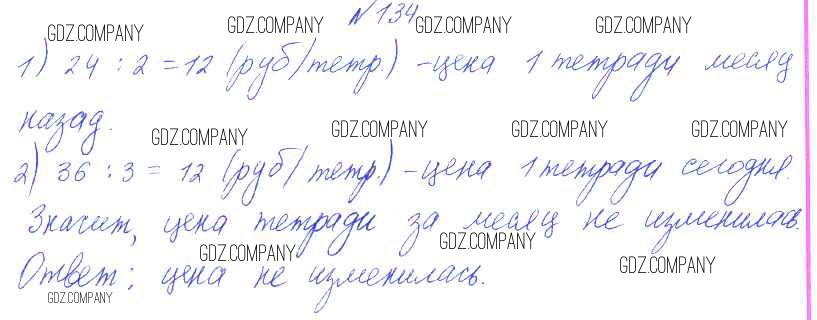 №134
GDZ.COMPANY GDZ.COMPANY GDZ.COMPANY GDZ.COMPANY
1) 24 : 2 = 12 (руб/тетр.) - цена 1 тетради месяц
назад.
GDZ.COMPANY GDZ.COMPANY GDZ.COMPANY GDZ.COMPANY
2) 36 : 3 = 12 (руб/тетр.) - цена 1 тетради сегодня.
Значит, цена тетради за месяц не изменилась.
GDZ.COMPANY GDZ.COMPANY GDZ.COMPANY
Ответ: цена не изменилась.
GDZ.COMPANY